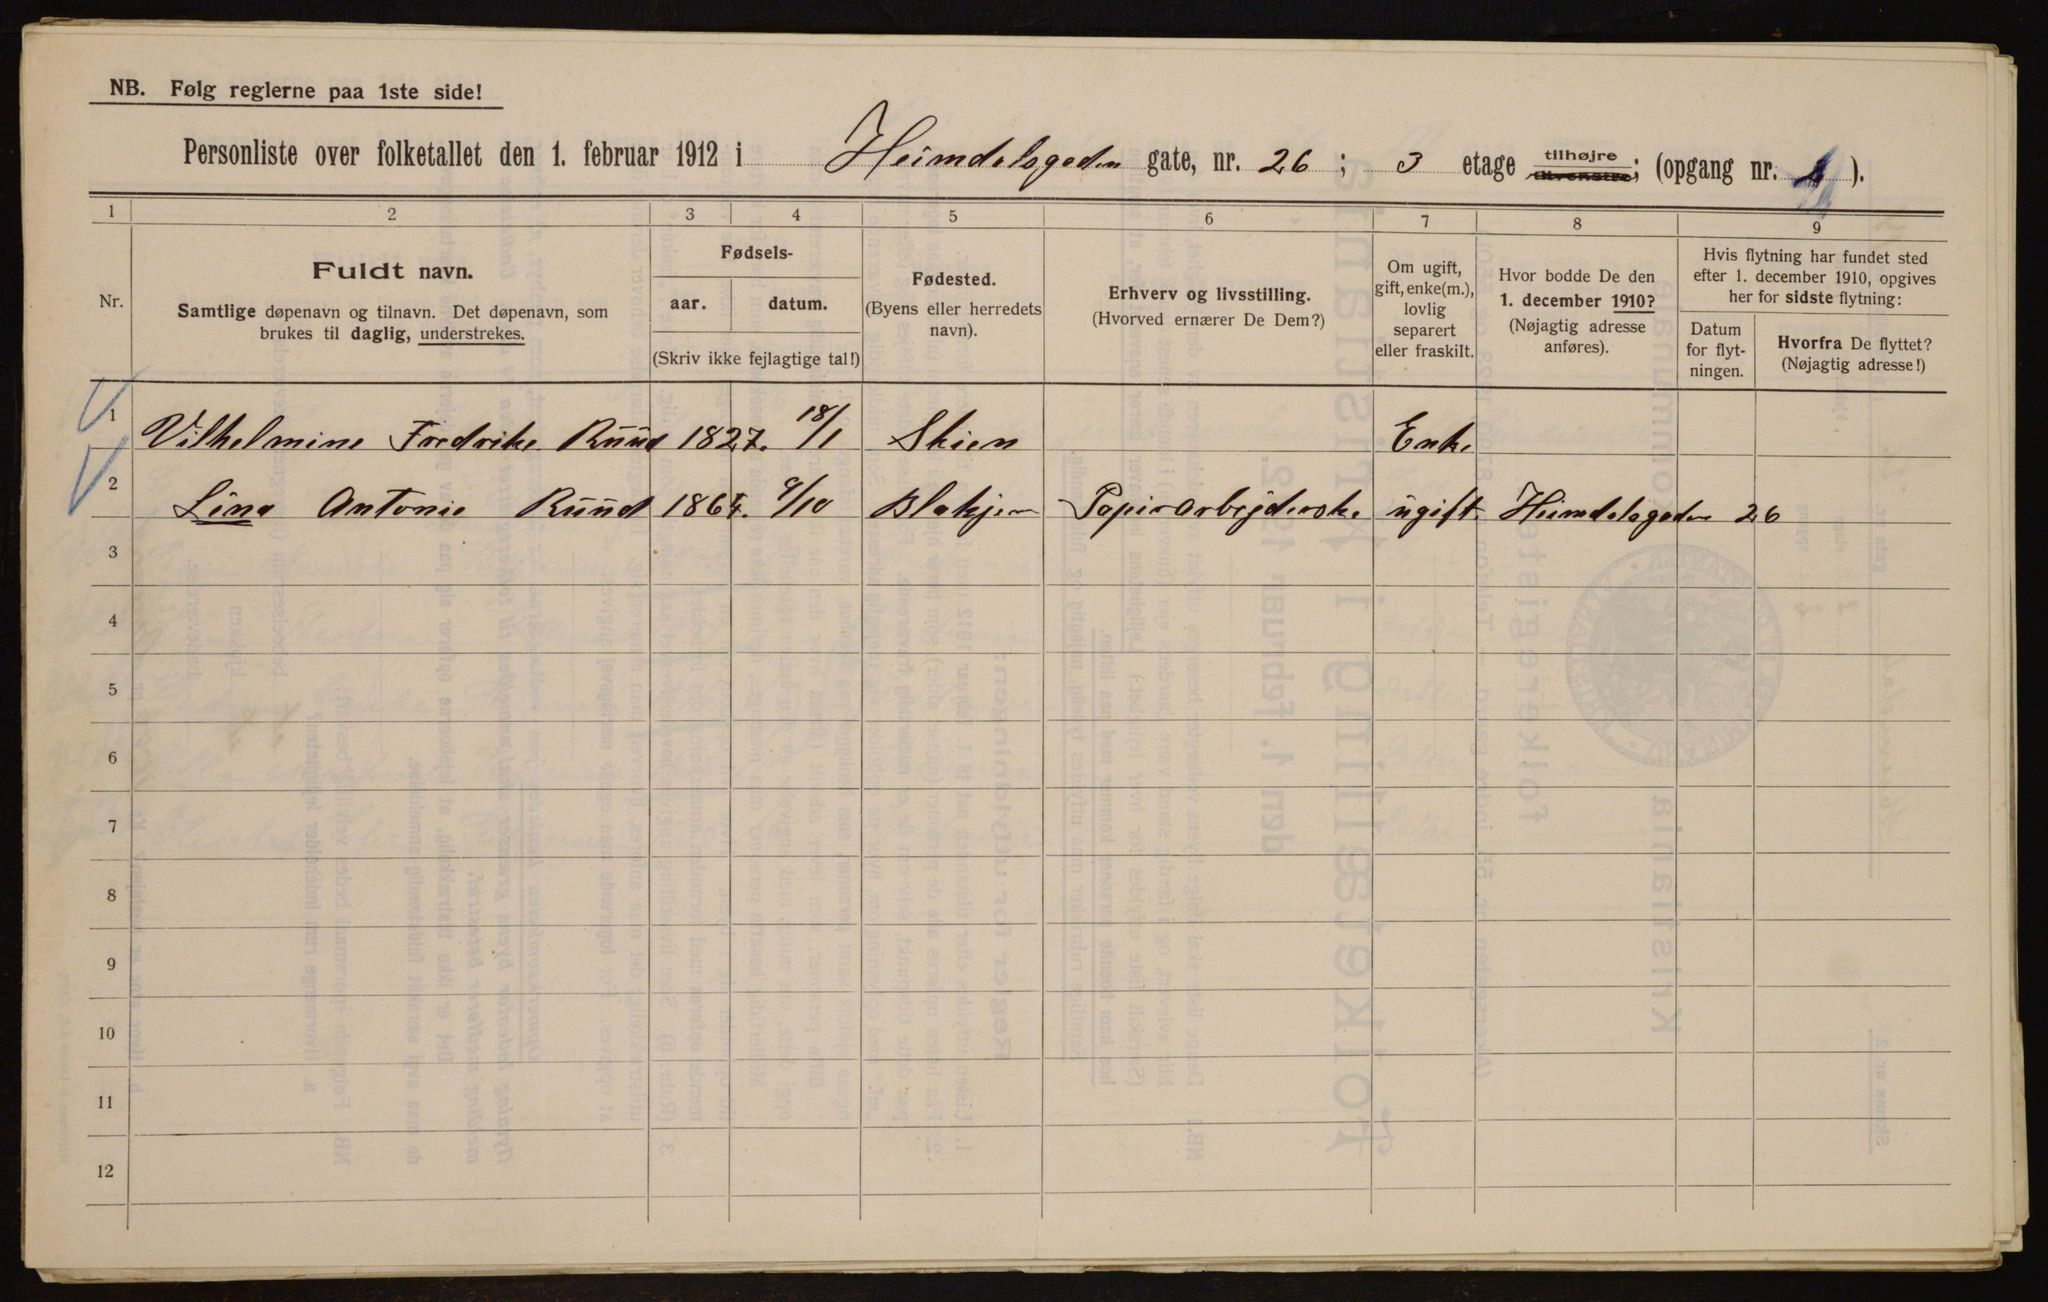 NB. Følg reglerne paa 1ste side!
Personliste over folketallet den 1. februar 1912 i Heimdalsgaden gate, nr. 26 ; 3 etage tilhøjre tilvenstre; (opgang nr. 2 ).
1 2 3 4 5 6 7 8 9
Nr.
Fuldt navn.
Samtlige døpenavn og tilnavn. Det døpenavn, som
brukes til daglig, understrekes.
Fødsels-
aar. datum.
(Skriv ikke fejlagtige tal!)
Fødested.
(Byens eller herredets
navn).
Erhverv og livsstilling.
(Hvorved ernærer De Dem?)
Om ugift,
gift, enke(m.),
lovlig
separert
eller fraskilt.
Hvor bodde De den
1. december 1910?
(Nøjagtig adresse
anføres).
Hvis flytning har fundet sted
efter 1. december 1910, opgives
her for sidste flytning:
Datum
for flyt-
ningen.
Hvorfra De flyttet?
(Nøjagtig adresse!)
1 Vilhelmine Fredrike Ruud 1827. 18/1 Skien Enke
2 Lina Antonie Ruud 9/10 Blakjer Papirarbejderske ugift Heimdalsgaden 26
3
4
5
6
7
8
9
10
11
12